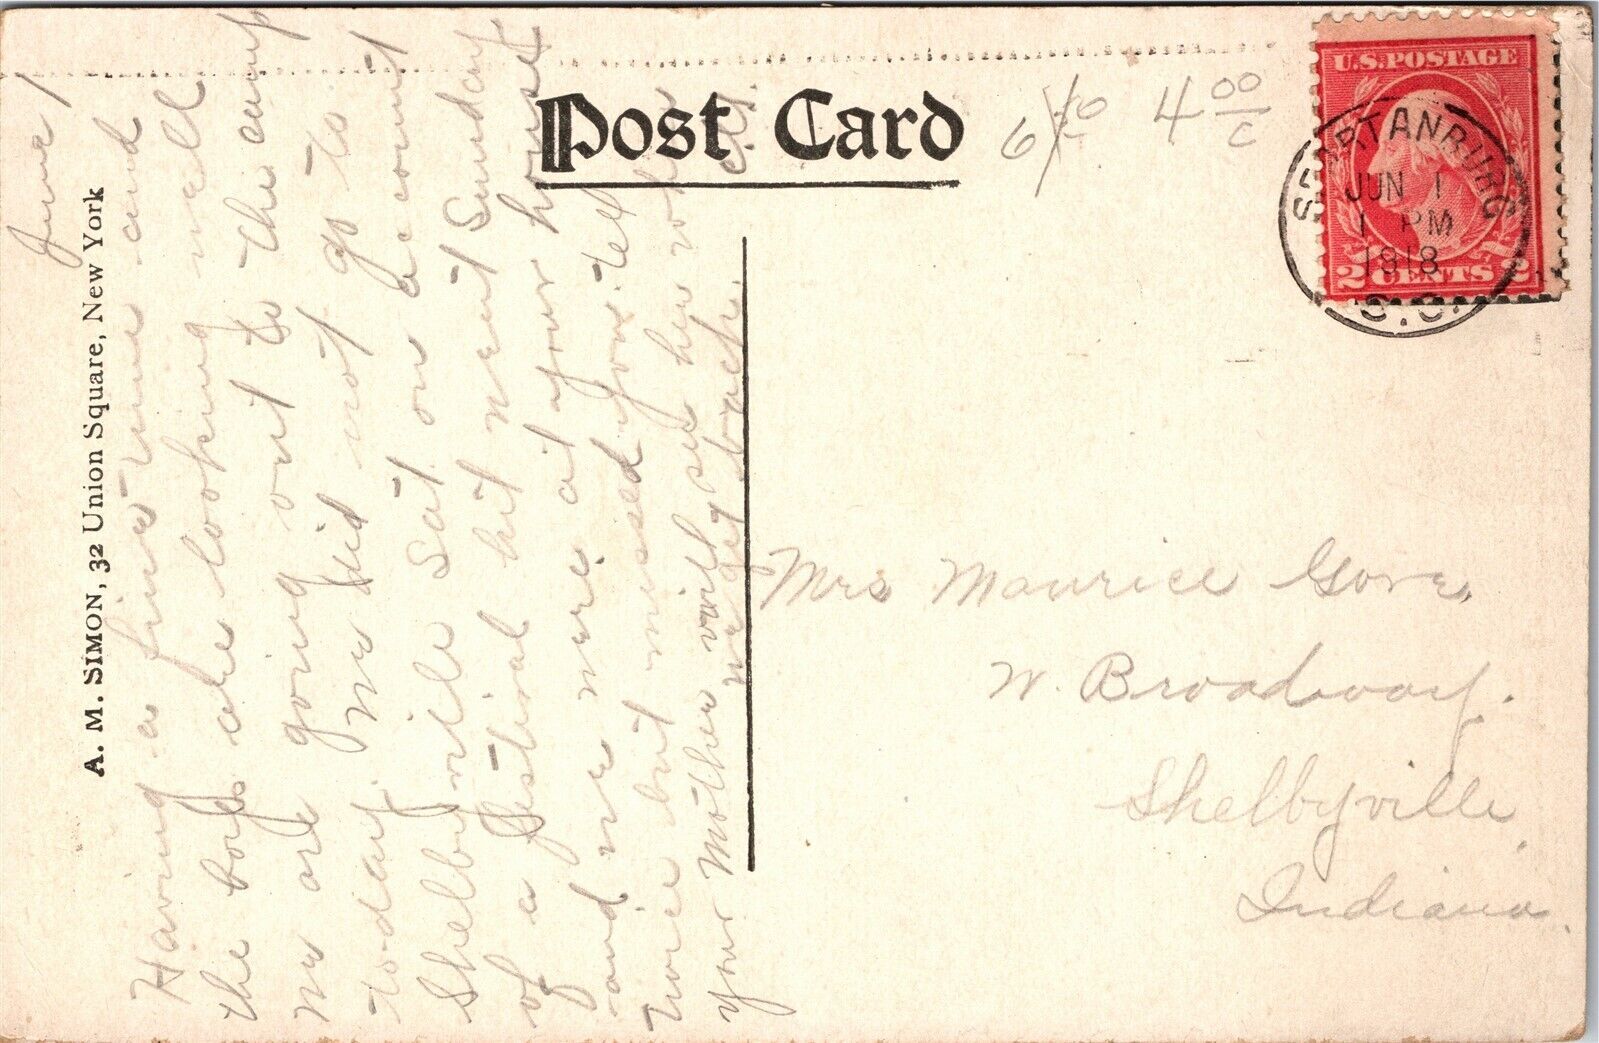 Post Card
6 50/c
4 00/c
U.S. POSTAGE
2 CENTS 2
SPARTANBURG
JUN 1
1 PM
1918
S.C.
A. M. SIMON, 32 Union Square, New York
June 1
Having a fine time and
the boys are looking well
we are going out to the camp
to-day. We did not go to
Shelbyville Sat on account
of a festival but went Sunday
and we were at your house
twice but missed you. Tell
your Mother will see her when
we get back.
Mrs Maurice Gore,
W. Broadway.
Shelbyville,
Indiana.